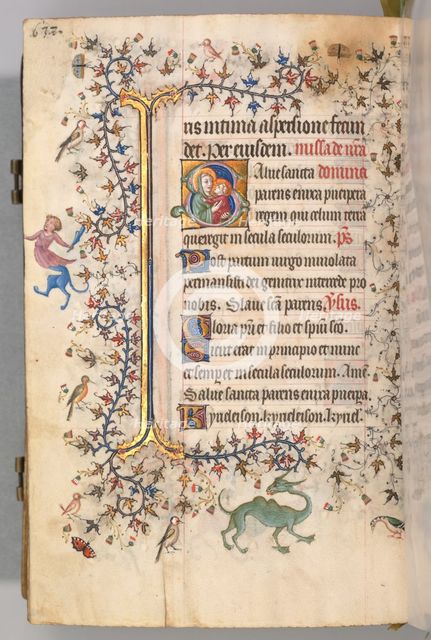 672
ris intima aspersione fecun
det. Per eundem. missa de nra
Salve sancta domina
parens enixa puerpera
regem qui celum terra
que regit in secula seculorum. ps
Post partum virgo inviolata
permansisti dei genitrix intercede pro
nobis. Salve scā parens. v̄sus.
Gloria pr̄i et filio et spiūi scō.
Sicut erat in principio et nunc
et semper et in secula seculorum. Amē.
Salve sancta parens enixa puerpa.
Kyrieleison. kyrieleison. kyriel.
Heritage Images